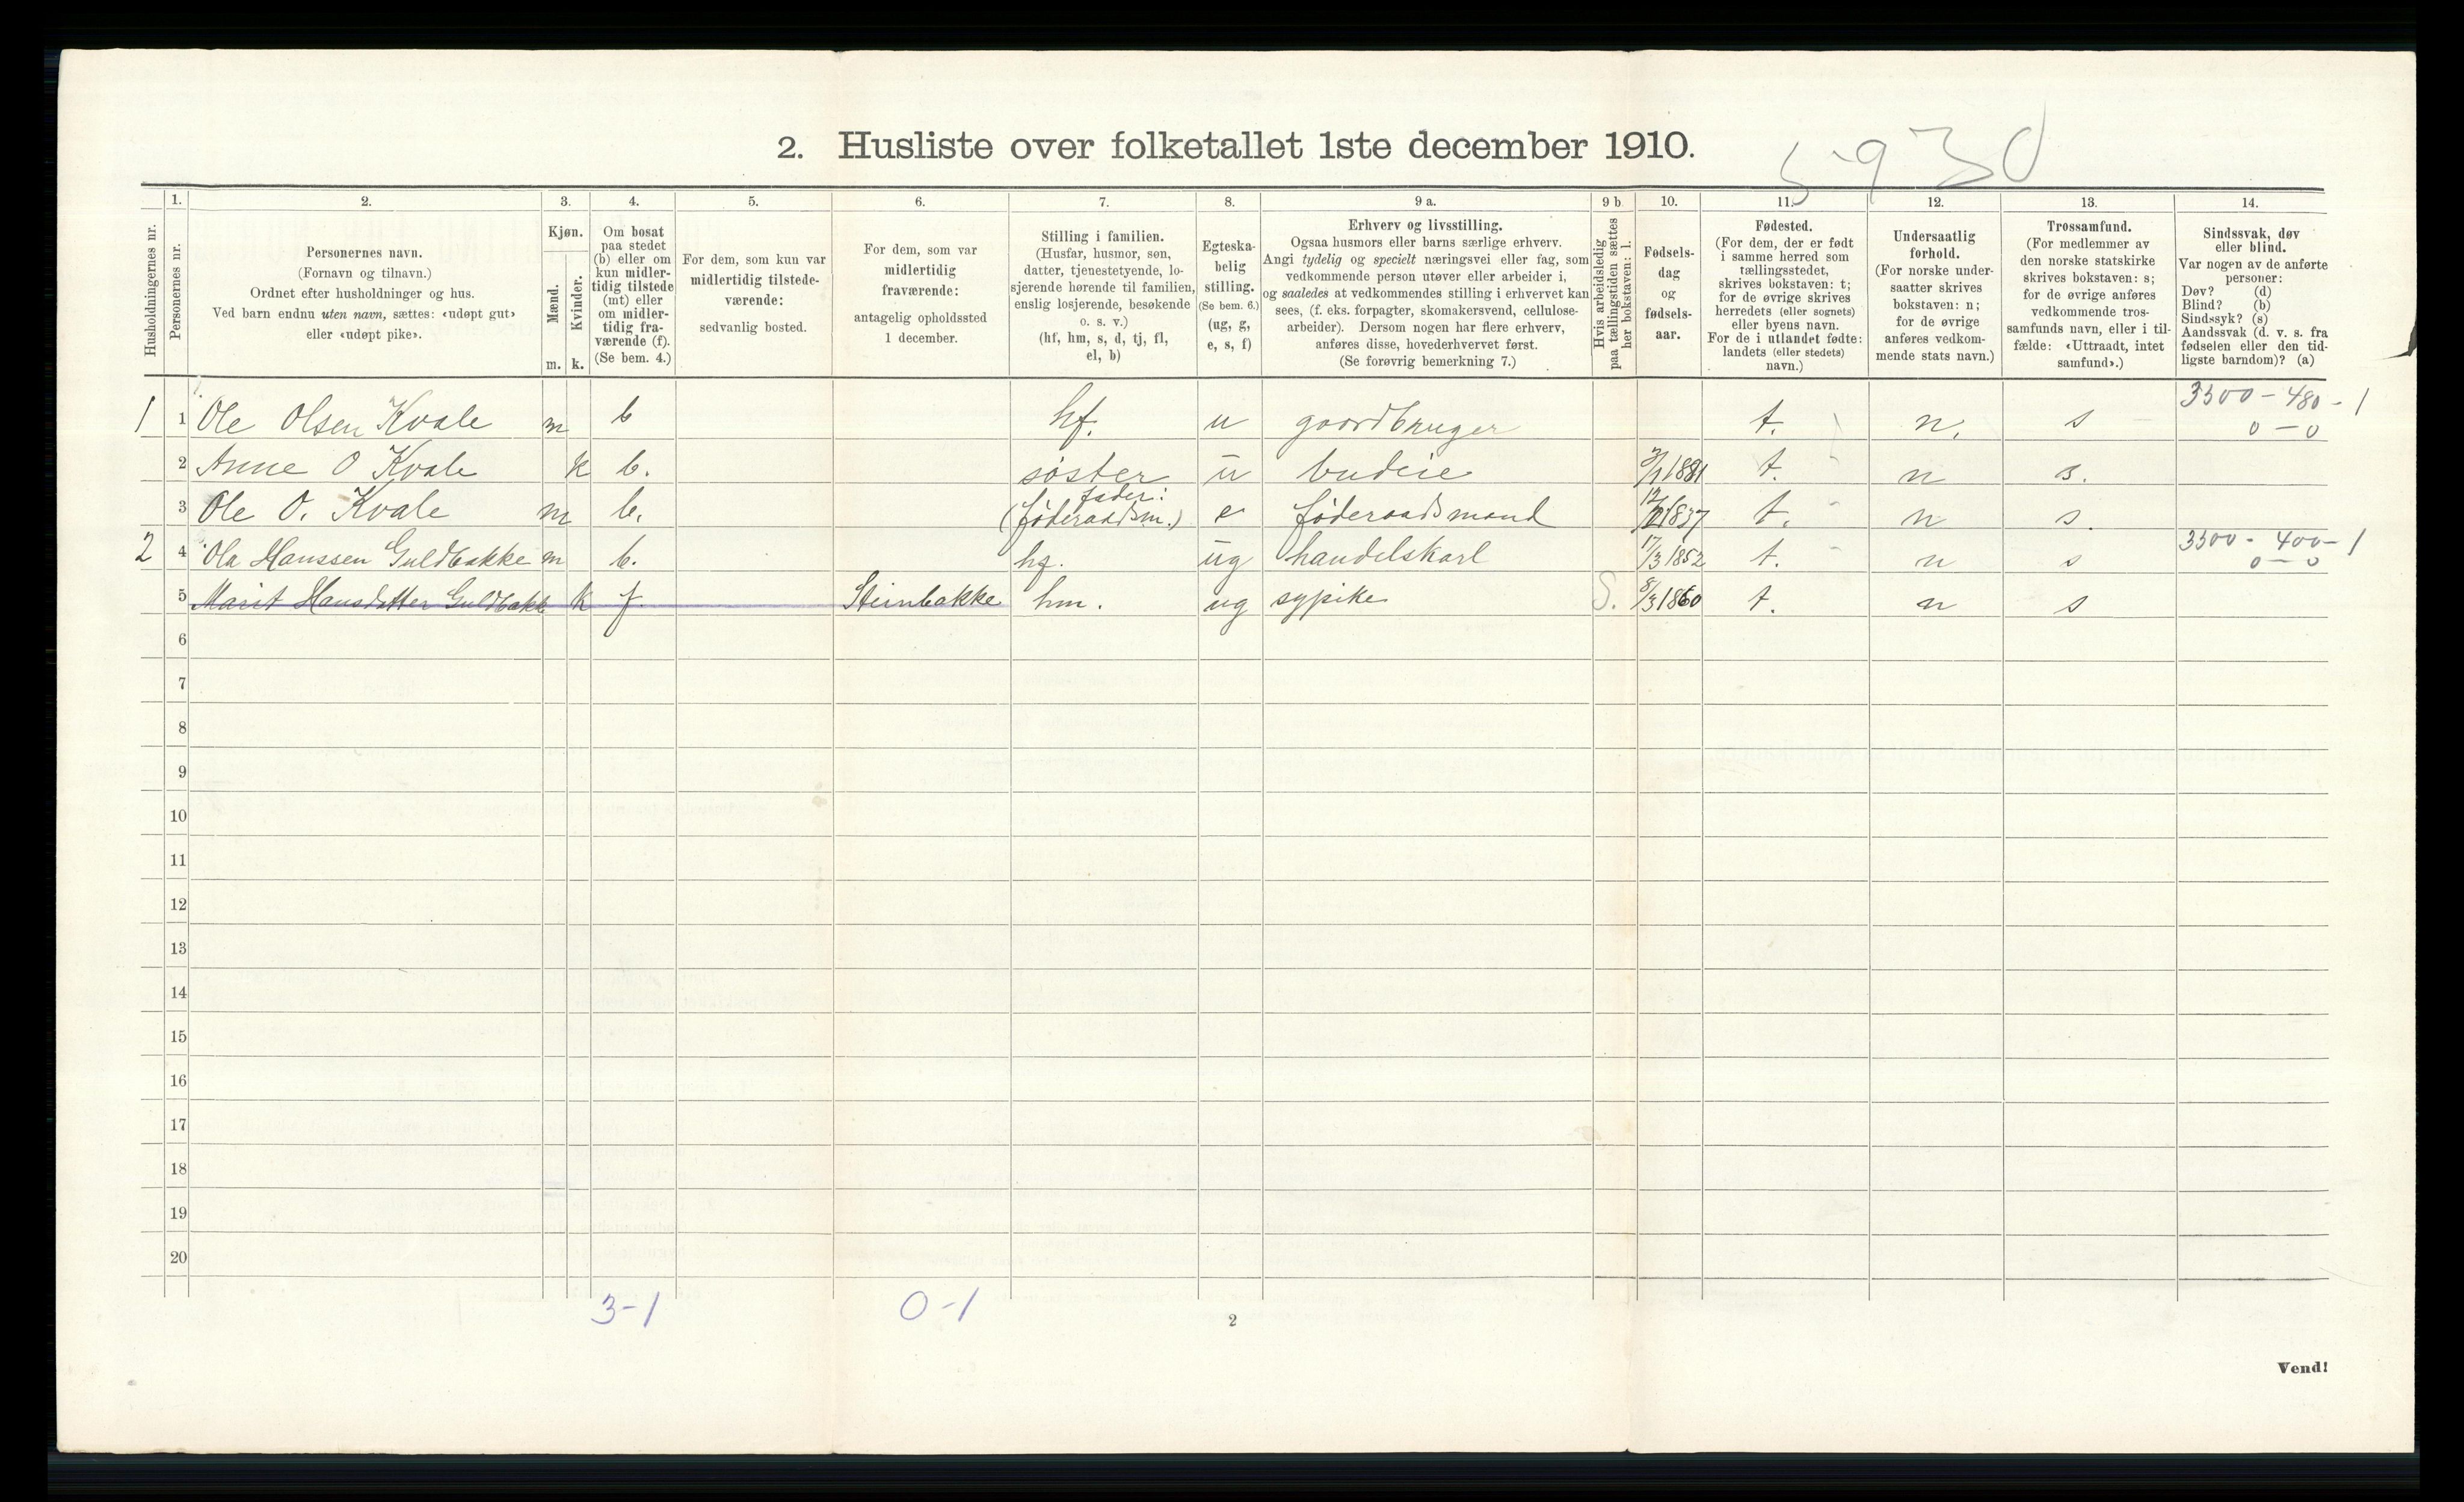 2. Husliste over folketallet 1ste december 1910.
5930
1. 2. 3. 4. 5. 6. 7. 8. 9 a. 9 b. 10. 11. 12. 13. 14.
Husholdningernes nr.
Personernes nr.
Personernes navn.
(Fornavn og tilnavn.)
Ordnet efter husholdninger og hus.
Ved barn endnu uten navn, sættes: «udøpt gut»
eller «udøpt pike».
Kjøn.
Mænd.
m.
Kvinder.
k.
Om bosat
paa stedet
(b) eller om
kun midler-
tidig tilstede
(mt) eller
om midler-
tidig fra-
værende (f).
(Se bem. 4.)
For dem, som kun var
midlertidig tilstede-
værende:
sedvanlig bosted.
For dem, som var
midlertidig
fraværende:
antagelig opholdssted
1 december.
Stilling i familien.
(Husfar, husmor, søn,
datter, tjenestetyende, lo-
sjerende hørende til familien,
enslig losjerende, besøkende
o. s. v.)
(hf, hm, s, d, tj, fl,
el, b)
Egteska-
belig
stilling.
(Se bem. 6.)
(ug, g,
e, s, f)
Erhverv og livsstilling.
Ogsaa husmors eller barns særlige erhverv.
Angi tydelig og specielt næringsvei eller fag, som
vedkommende person utøver eller arbeider i,
og saaledes at vedkommendes stilling i erhvervet kan
sees, (f. eks. forpagter, skomakersvend, cellulose-
arbeider). Dersom nogen har flere erhverv,
anføres disse, hovederhvervet først.
(Se forøvrig bemerkning 7.)
Hvis arbeidsledig
paa tællingstiden sættes
her bokstaven: l.
Fødsels-
dag
og
fødsels-
aar.
Fødested.
(For dem, der er født
i samme herred som
tællingsstedet,
skrives bokstaven: t;
for de øvrige skrives
herredets (eller sognets)
eller byens navn.
For de i utlandet fødte:
landets (eller stedets)
navn.)
Undersaatlig
forhold.
(For norske under-
saatter skrives
bokstaven: n;
for de øvrige
anføres vedkom-
mende stats navn.)
Trossamfund.
(For medlemmer av
den norske statskirke
skrives bokstaven: s;
for de øvrige anføres
vedkommende tros-
samfunds navn, eller i til-
fælde: «Uttraadt, intet
samfund».)
Sindssvak, døv
eller blind.
Var nogen av de anførte
personer:
Døv? (d)
Blind? (b)
Sindssyk? (s)
Aandssvak (d. v. s. fra
fødselen eller den tid-
ligste barndom)? (a)
3300 - 480 - 1
1 1 Ole Olsen Kvale m b hf. u gaardbruger t. n. s 0 - 0
2 Anne O Kvale k b. søster u budeie 1881 t. n s.
fader:
3 Ole O. Kvale m b. (føderaadsm.) e føderaadsmand 1837 t. n s.
3300 - 400 - 1
2 4 Ola Hanssen Guldbakke m b. hf. ug handelskarl 17/3 1852 t. n s 0 - 0
5 Marit Hansdatter Guldbakk k f. Steinbakke hm. ug sypike S. 8/3 1860 t. n s
6
7
8
9
10
11
12
13
14
15
16
17
18
19
20
3-1 0-1
2
Vend!